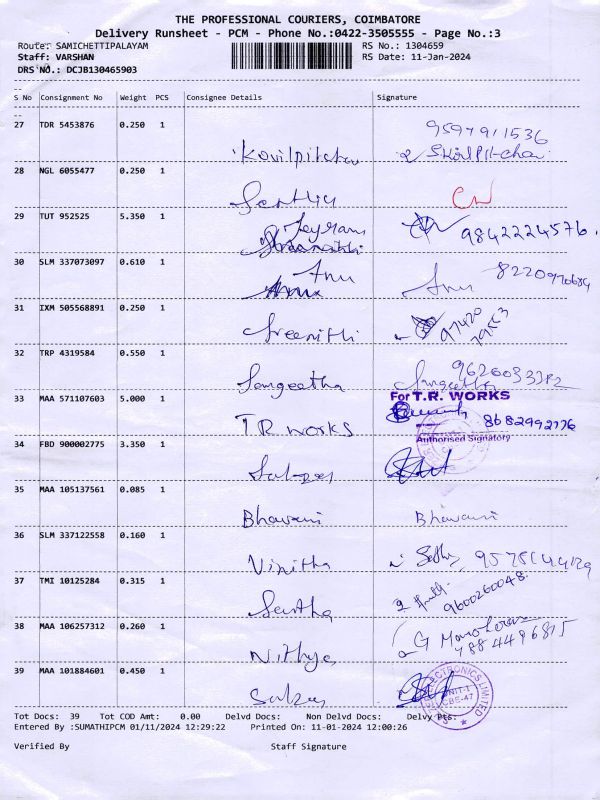 THE PROFESSIONAL COURIERS, COIMBATORE
Delivery Runsheet - PCM - Phone No.:0422-3505555 - Page No.:3
Route: SAMICHETTIPALAYAM RS No.: 1304659
Staff: VARSHAN RS Date: 11-Jan-2024
DRS NO.: DCJB130465903
S No Consignment No Weight PCS Consignee Details Signature
27 TDR 5453876 0.250 1
9597911536
Kovilpitchai
28 NGL 6055477 0.250 1
Senthil
29 TUT 952525 5.350 1
Jeyram
9842224576.
30 SLM 337073097 0.610 1
Anu Anu
31 IXM 505568891 0.250 1
Sreenithi
32 TRP 4319584 0.550 1
Sangeetha Sangeetha
33 MAA 571107603 5.000 1 For T.R. WORKS
T.R works
Authorised Signatory
34 FBD 900002775 3.350 1
35 MAA 105137561 0.085 1
Bhavani Bhavani
36 SLM 337122558 0.160 1
Vinitha
37 TMI 10125284 0.315 1
9600260048.
38 MAA 106257312 0.260 1
G Manoharan
7884496815
Nithya
39 MAA 101884601 0.450 1
Tot Docs: 39 Tot COD Amt: 0.00 Delvd Docs: Non Delvd Docs: Delvy Pts:
Entered By :SUMATHIPCM 01/11/2024 12:29:22 Printed On: 11-01-2024 12:00:26
Verified By Staff Signature